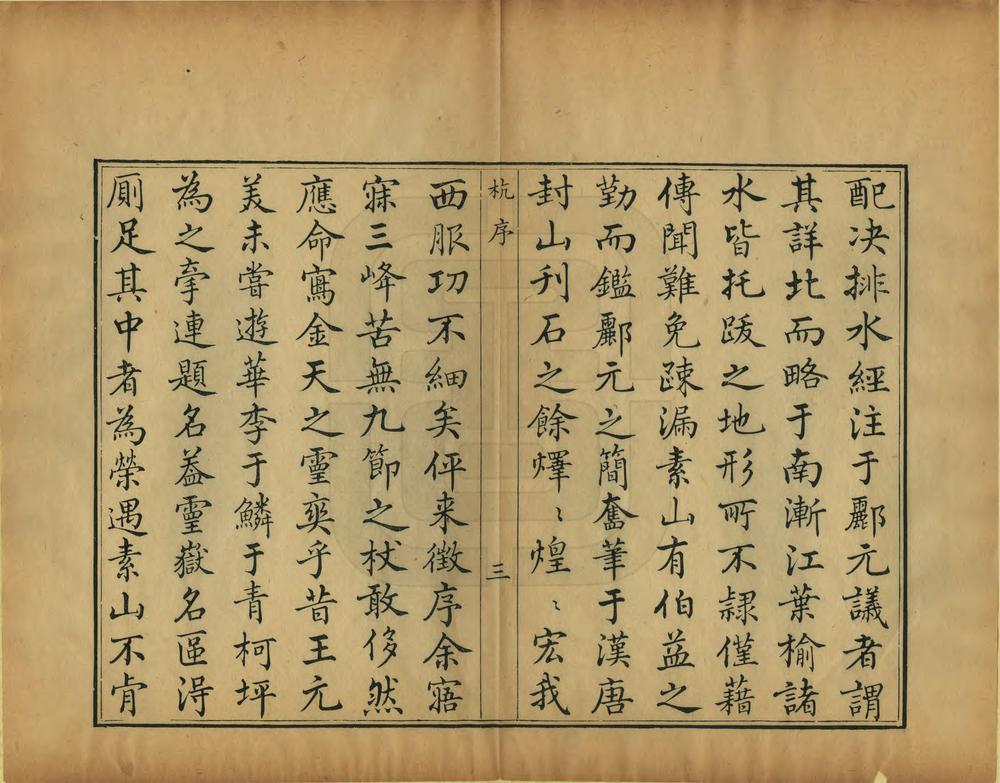 配决排水經注于酈元議者謂
其詳北而略于南漸江葉榆諸
水皆托跋之地形所不隷僅藉
傳聞難免踈漏素山有伯益之
勤而鑑酈元之簡奮筆于漢唐
封山刋石之餘燡〻煌〻宏我
杭序 三
西服功不細矣伻来徵序余寤
寐三峰苦無九節之杖敢侈然
應命寫金天之靈奭乎昔王元
美未嘗遊華李于鱗于青柯坪
為之牽連題名葢靈嶽名區淂
厠足其中者為榮遇素山不肯